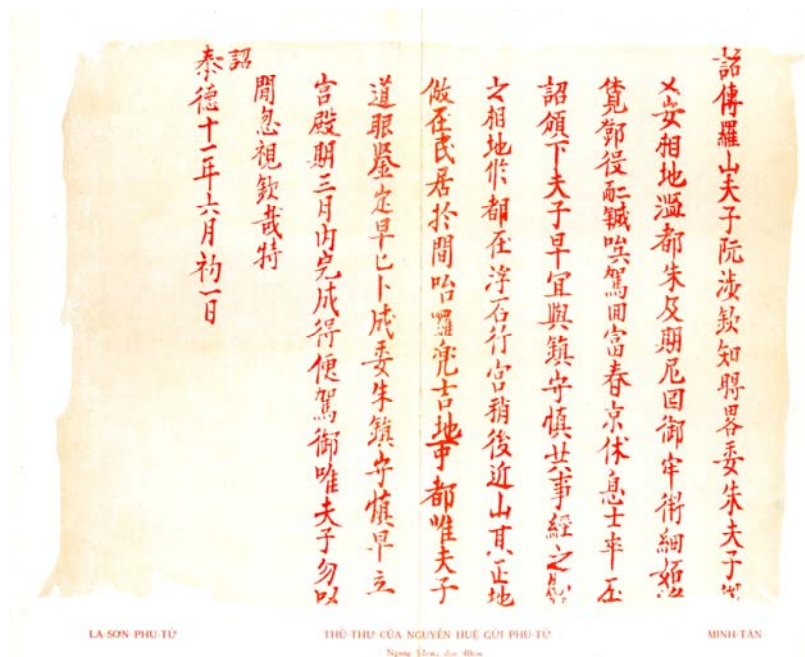 詔傳羅山夫子阮浹欽知畧委朱夫子
乂安相地濫都朱及期尼回御牢衛細
役駕回富春京休息士卒
詔頒下夫子早宜與鎮守慎共事經之營
之相地作都在浮石行宮稍後近山其正地
倣在民居於間咍羅兜吉地可都唯夫子
道眼鑒定早卜成委朱鎮守慎早立
宮殿期三月内完成得便駕御唯夫子勿以
閒忽視欽哉特
詔
泰德十一年六月初一日
LA-SƠN PHU-TỬ
THỦ-THƯ CỦA NGUYỄN HUỆ GỬI PHU-TỬ
MINH-TÂN